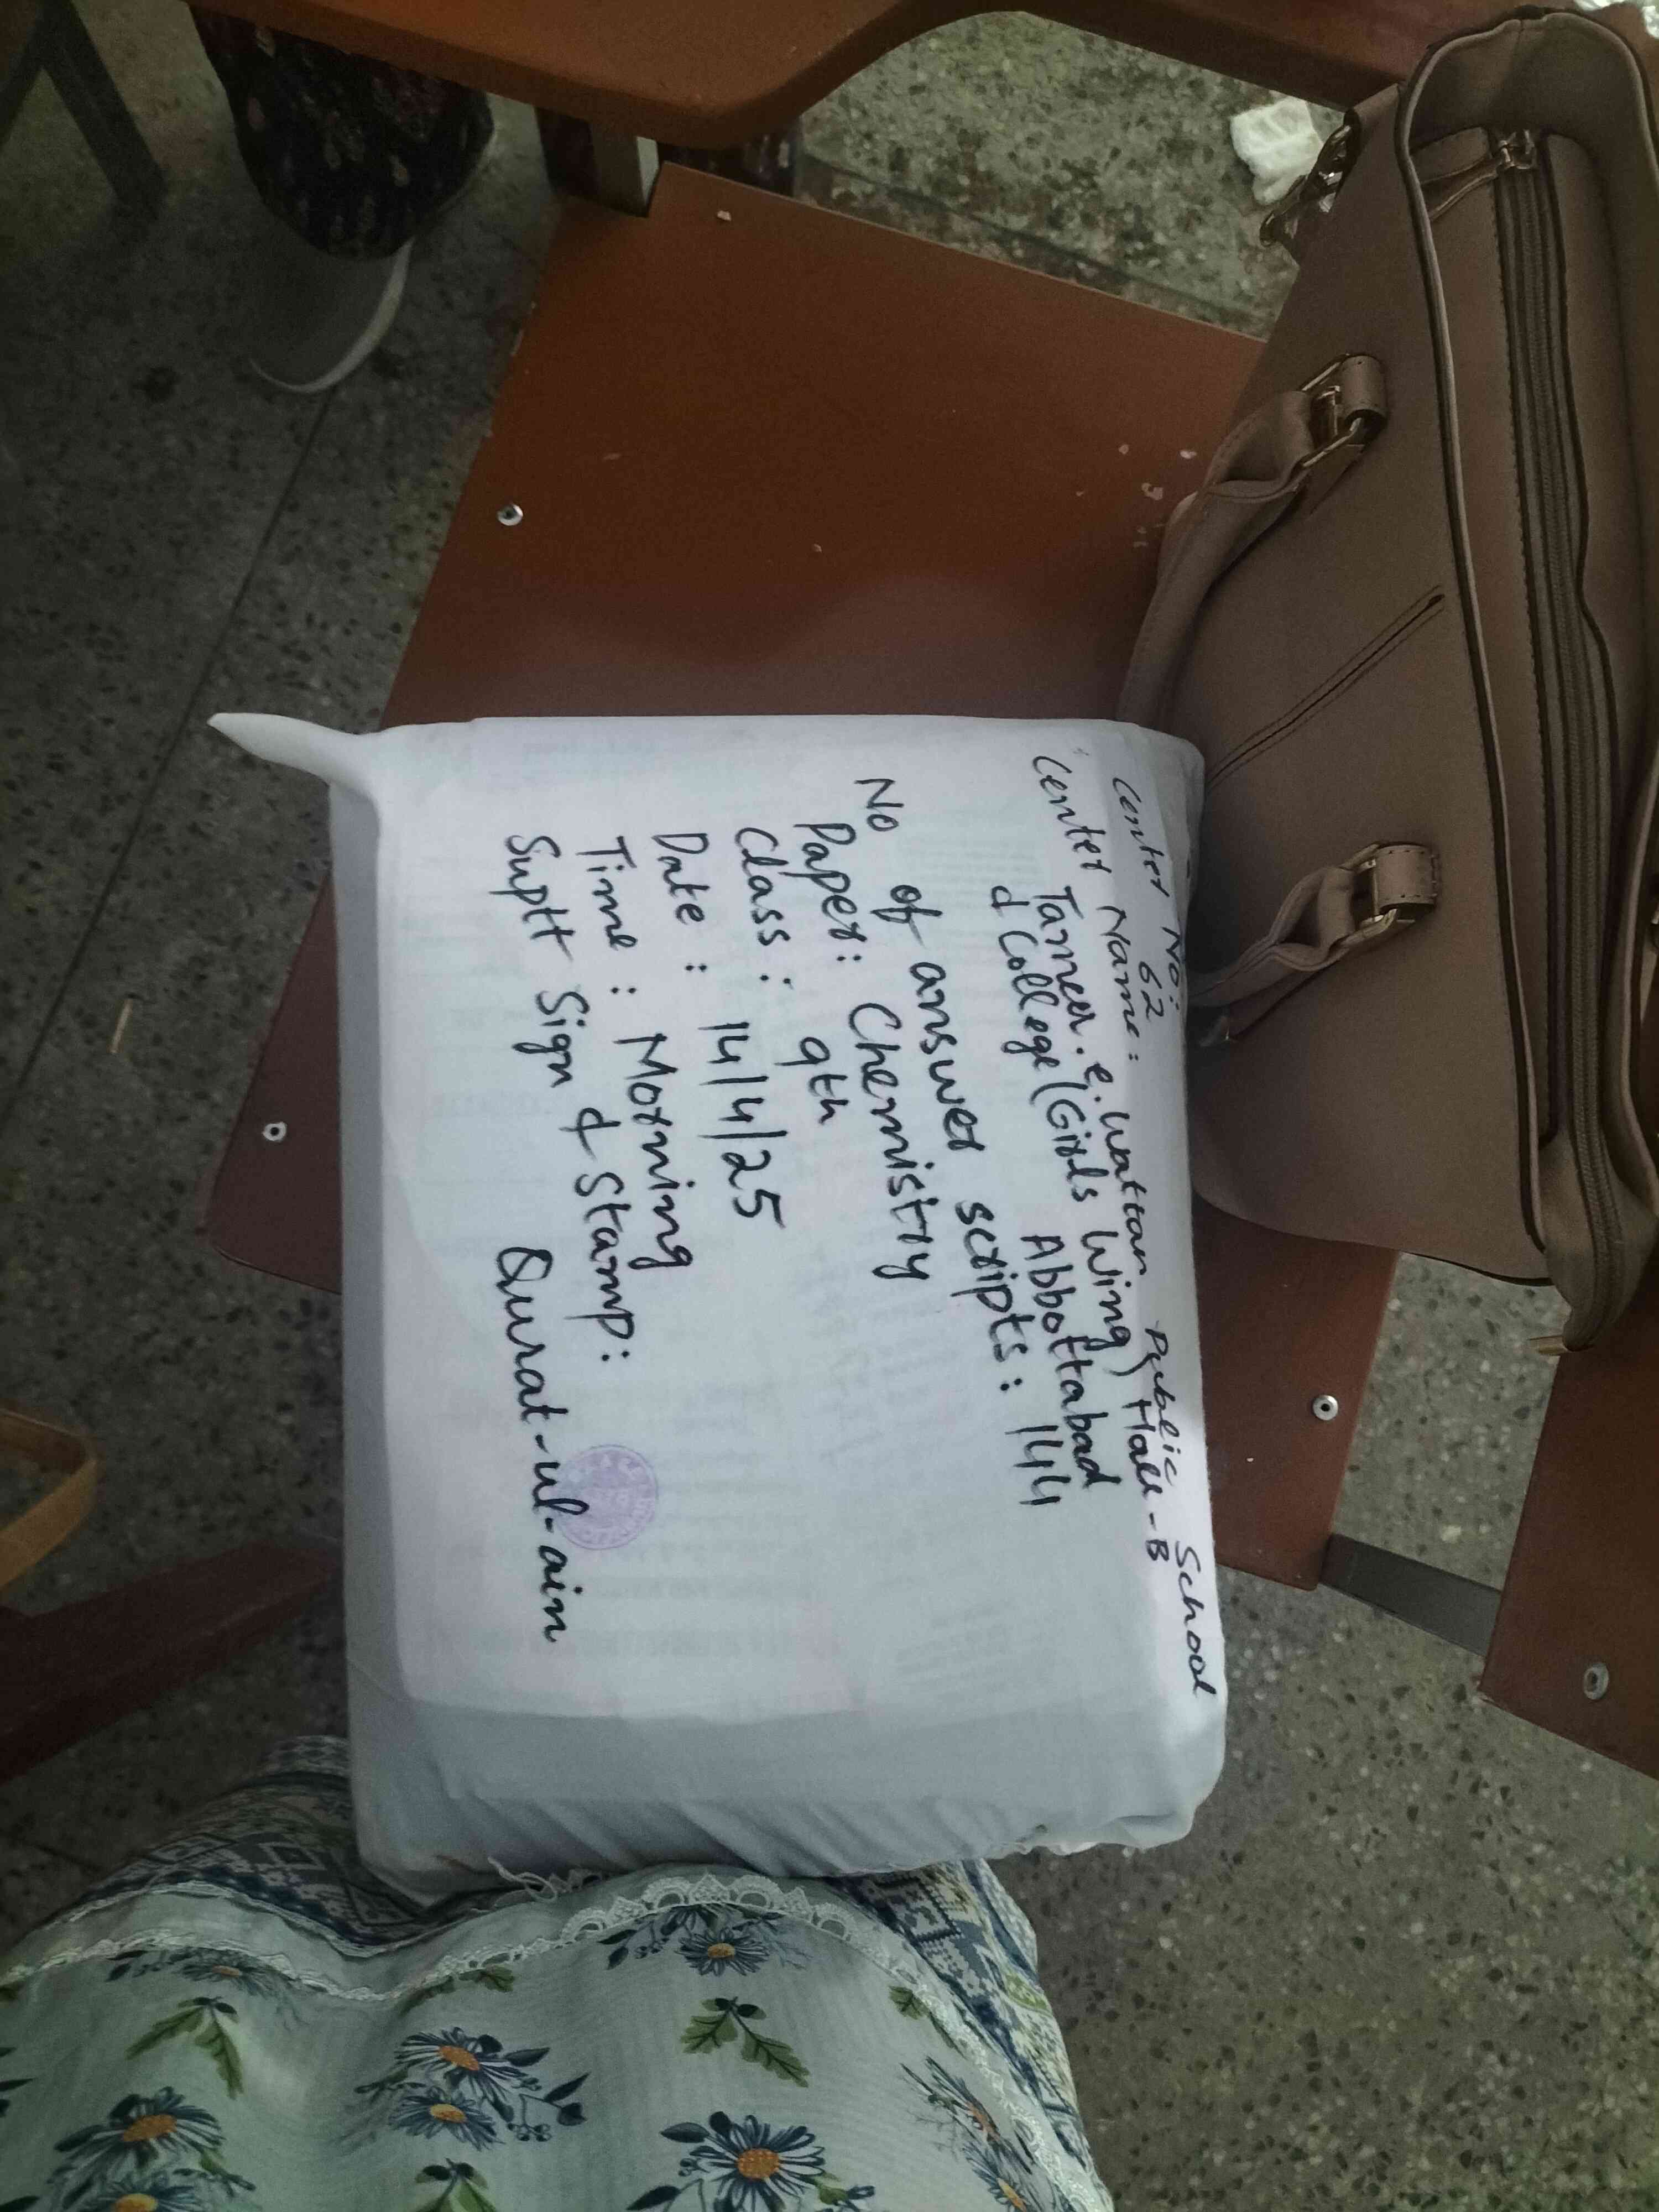 Center No: 62
Center Name:
Tameer.e.Wattan Public School
& College (Girls Wing) Hall-B
Abbottabad
No of answer scripts: 144
Paper: Chemistry
Class: 9th
Date: 14/4/25
Time: Morning
Suptt Sign & Stamp:
Qurat-ul-ain